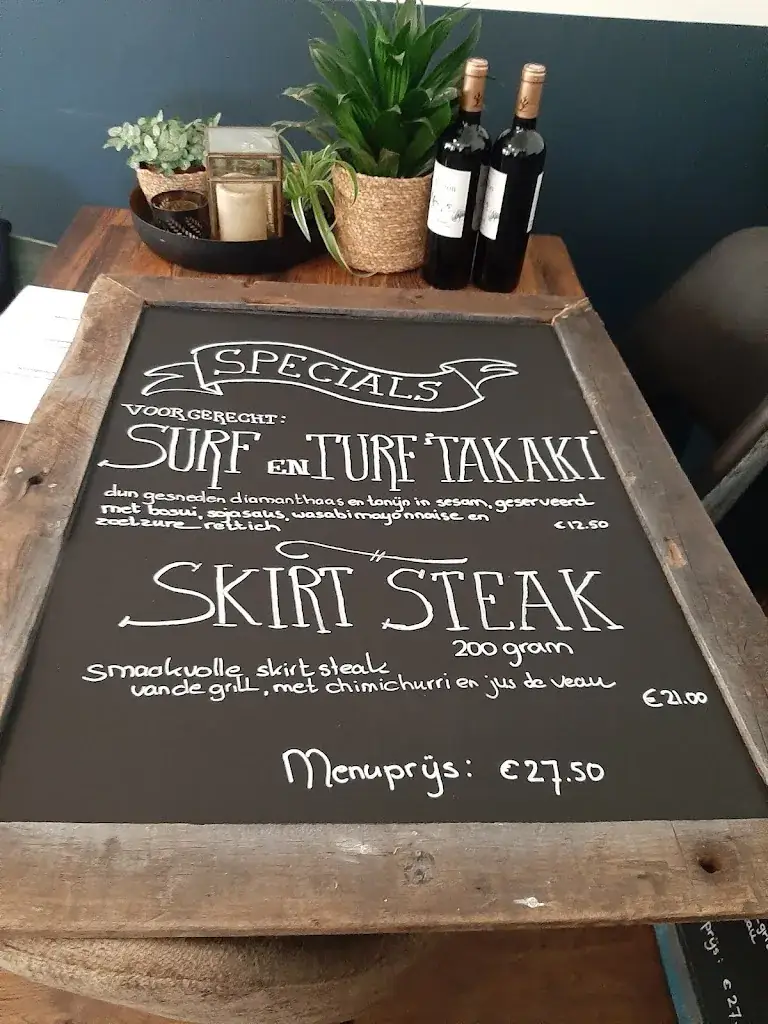 SPECIALS
VOORGERECHT:
SURF EN TURF "TAKAKI"
dun gesneden diamanthaas en tonijn in sesam, geserveerd
met bosui, sojasaus, wasabimayonnaise en
zoetzure rettich €12.50
SKIRT STEAK
200 gram
smaakvolle skirt steak
van de grill, met chimichurri en jus de veau
€21.00
Menuprijs: €27.50
prijs: € 27